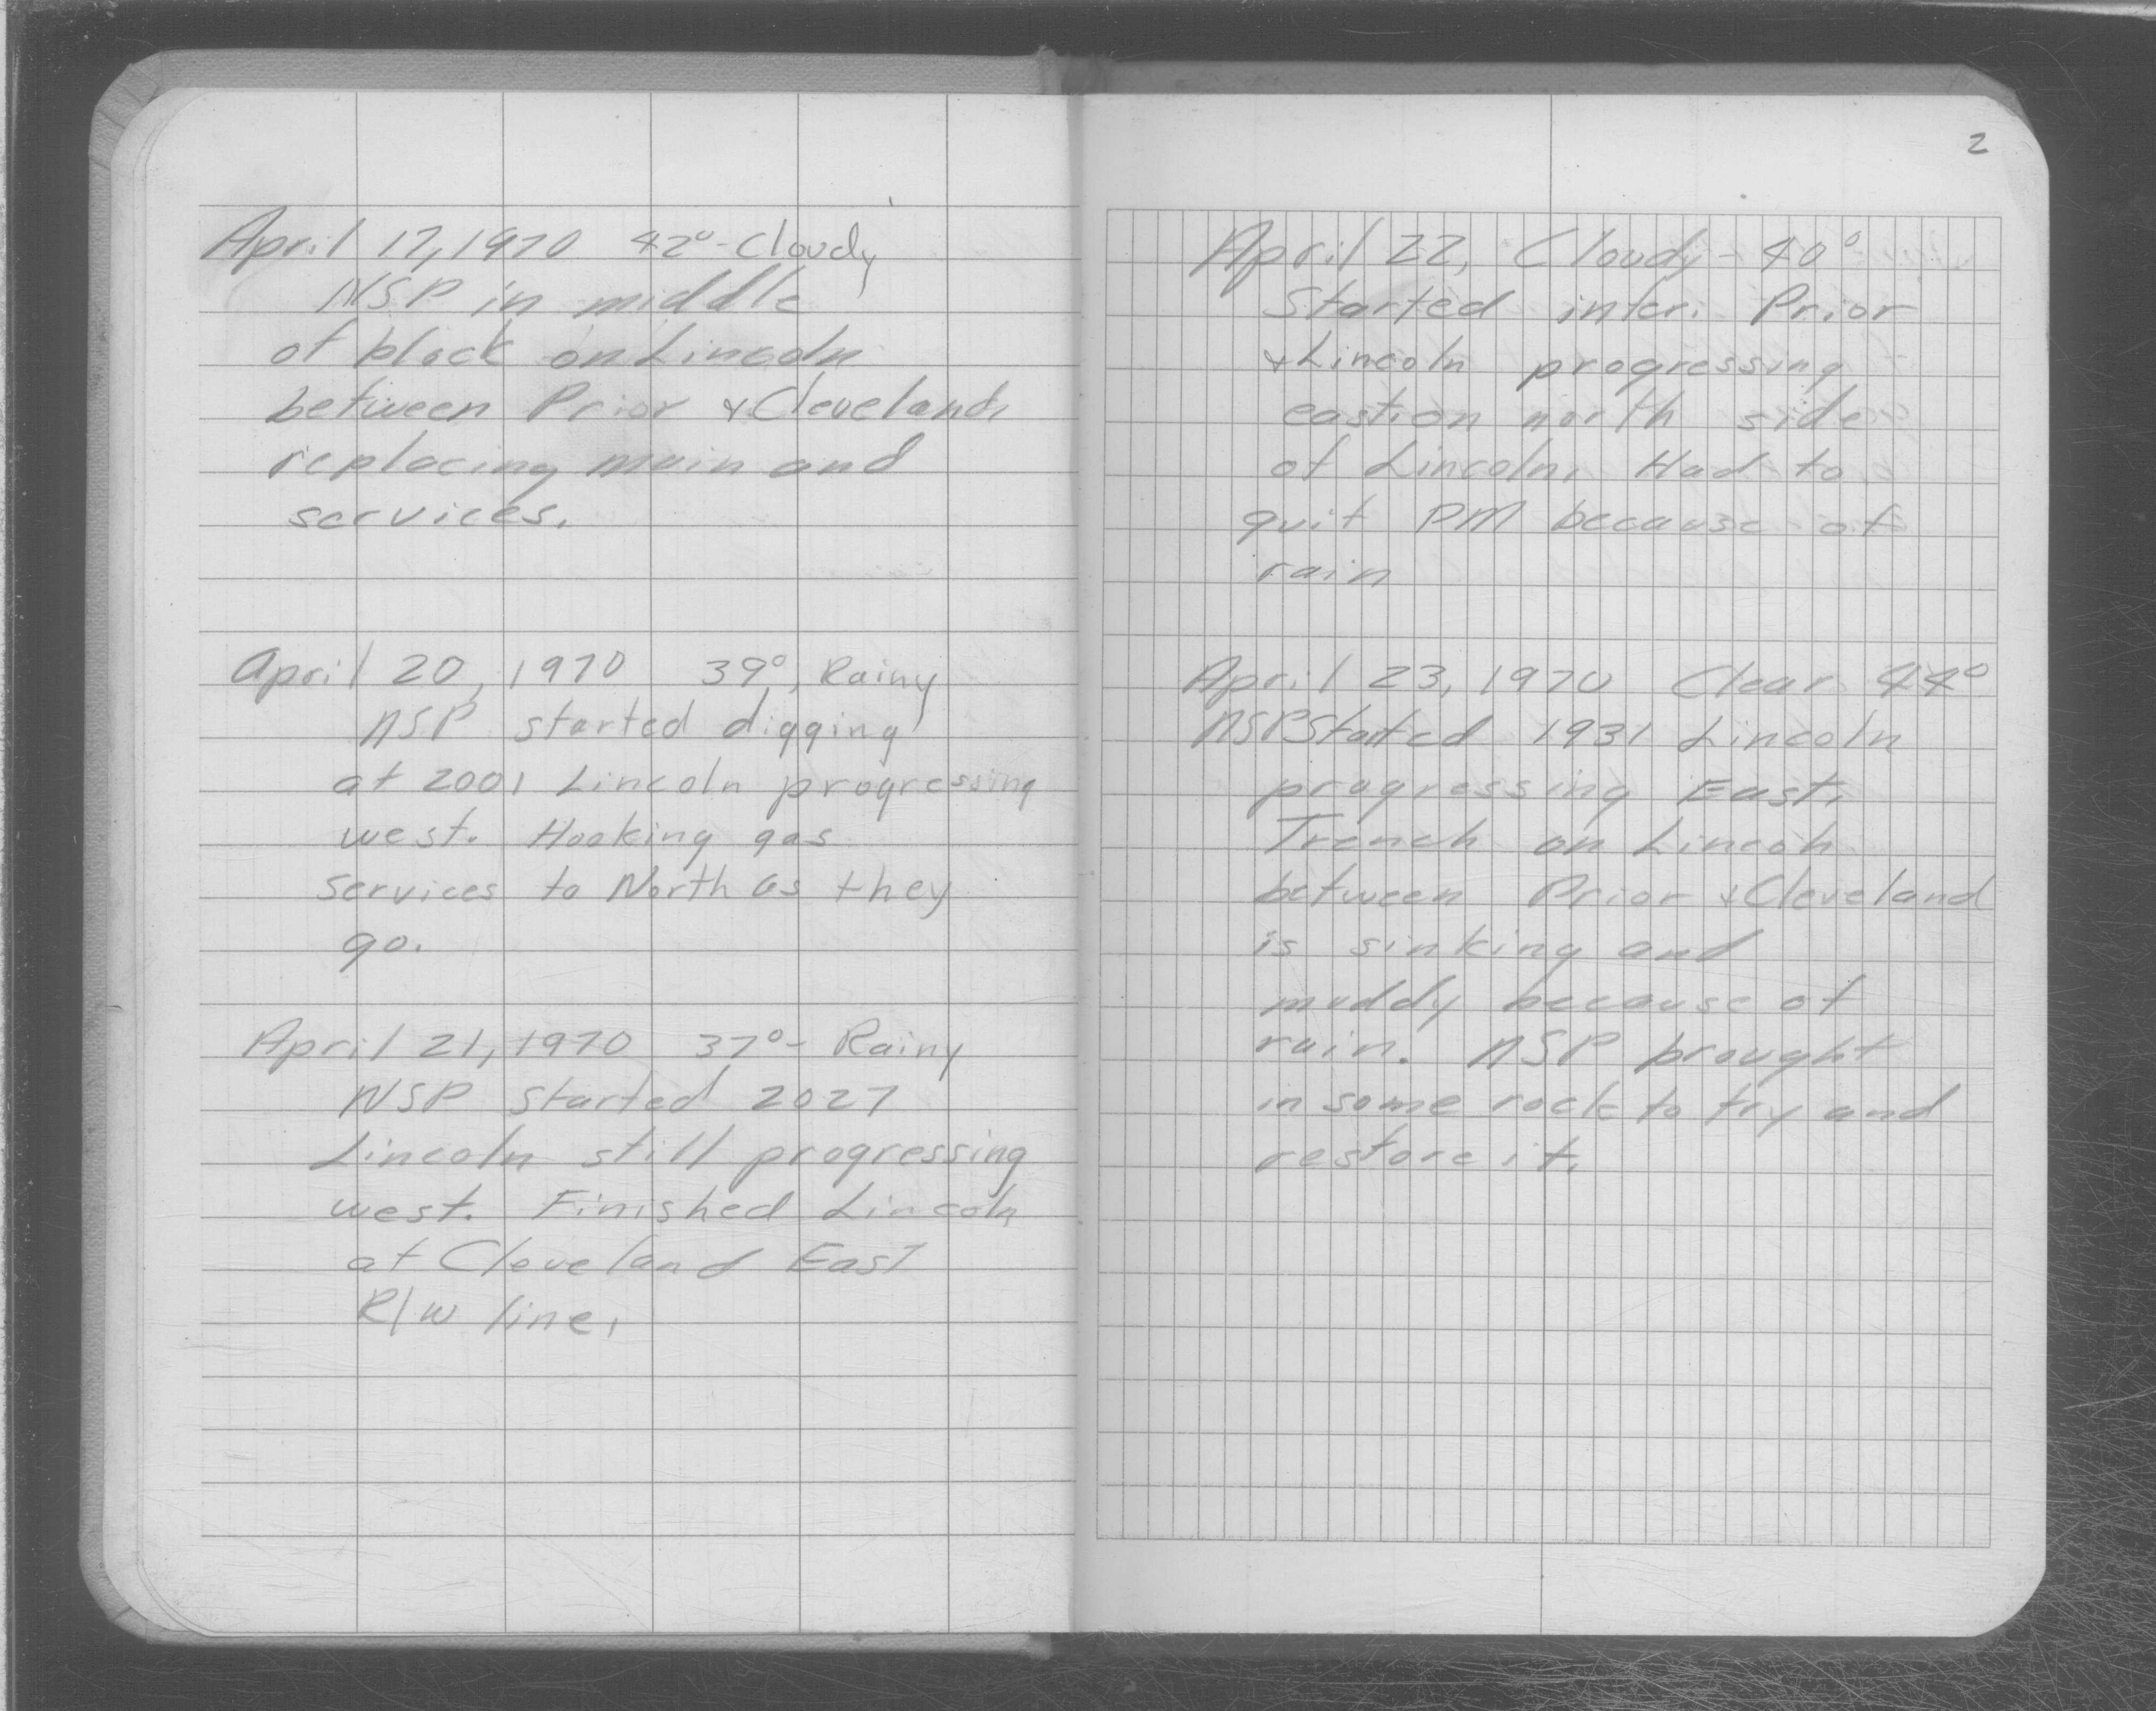 April 17, 1970 42°-Cloudy
NSP in middle
of block on Lincoln
between Prior & Cleveland,
replacing main and
services.
April 20, 1970 39°, Rainy
NSP started digging
at 2001 Lincoln progressing
west. Hooking gas
services to North as they
go.
April 21, 1970 37°- Rainy
NSP started 2027
Lincoln still progressing
west. Finished Lincoln
at Cleveland East
R/W line.
2
April 22, Cloudy - 40°
Started inter. Prior
& Lincoln progressing
east on north side
of Lincoln. Had to
quit PM because of
rain
April 23, 1970 Clear 44°
NSP Started 1931 Lincoln
progressing East.
Trench on Lincoln
between Prior & Cleveland
is sinking and
muddy because of
rain. NSP brought
in some rock to try and
restore it.